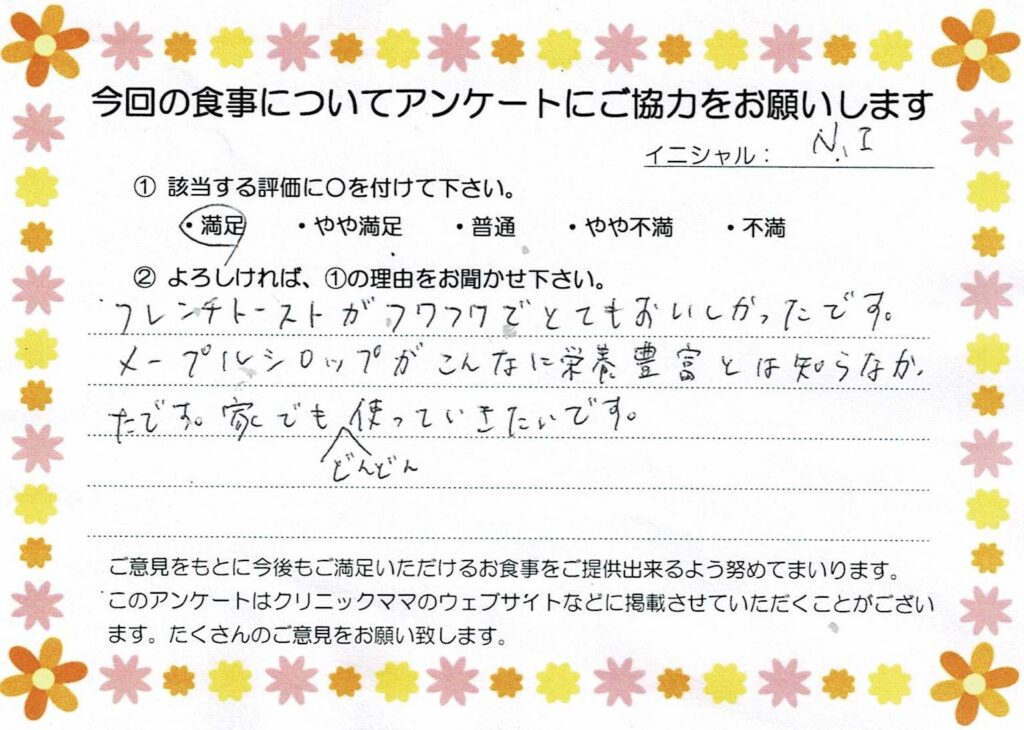 今回の食事についてアンケートにご協力をお願いします
イニシャル： N.I
① 該当する評価に〇を付けて下さい。
・満足 ・やや満足 ・普通 ・やや不満 ・不満
② よろしければ、①の理由をお聞かせ下さい。
フレンチトーストがフワフワでとてもおいしかったです。
メープルシロップがこんなに栄養豊富とは知らなかっ
たです。家でも使っていきたいです。
どんどん
ご意見をもとに今後もご満足いただけるお食事をご提供出来るよう努めてまいります。
このアンケートはクリニックママのウェブサイトなどに掲載させていただくことがござい
ます。たくさんのご意見をお願い致します。